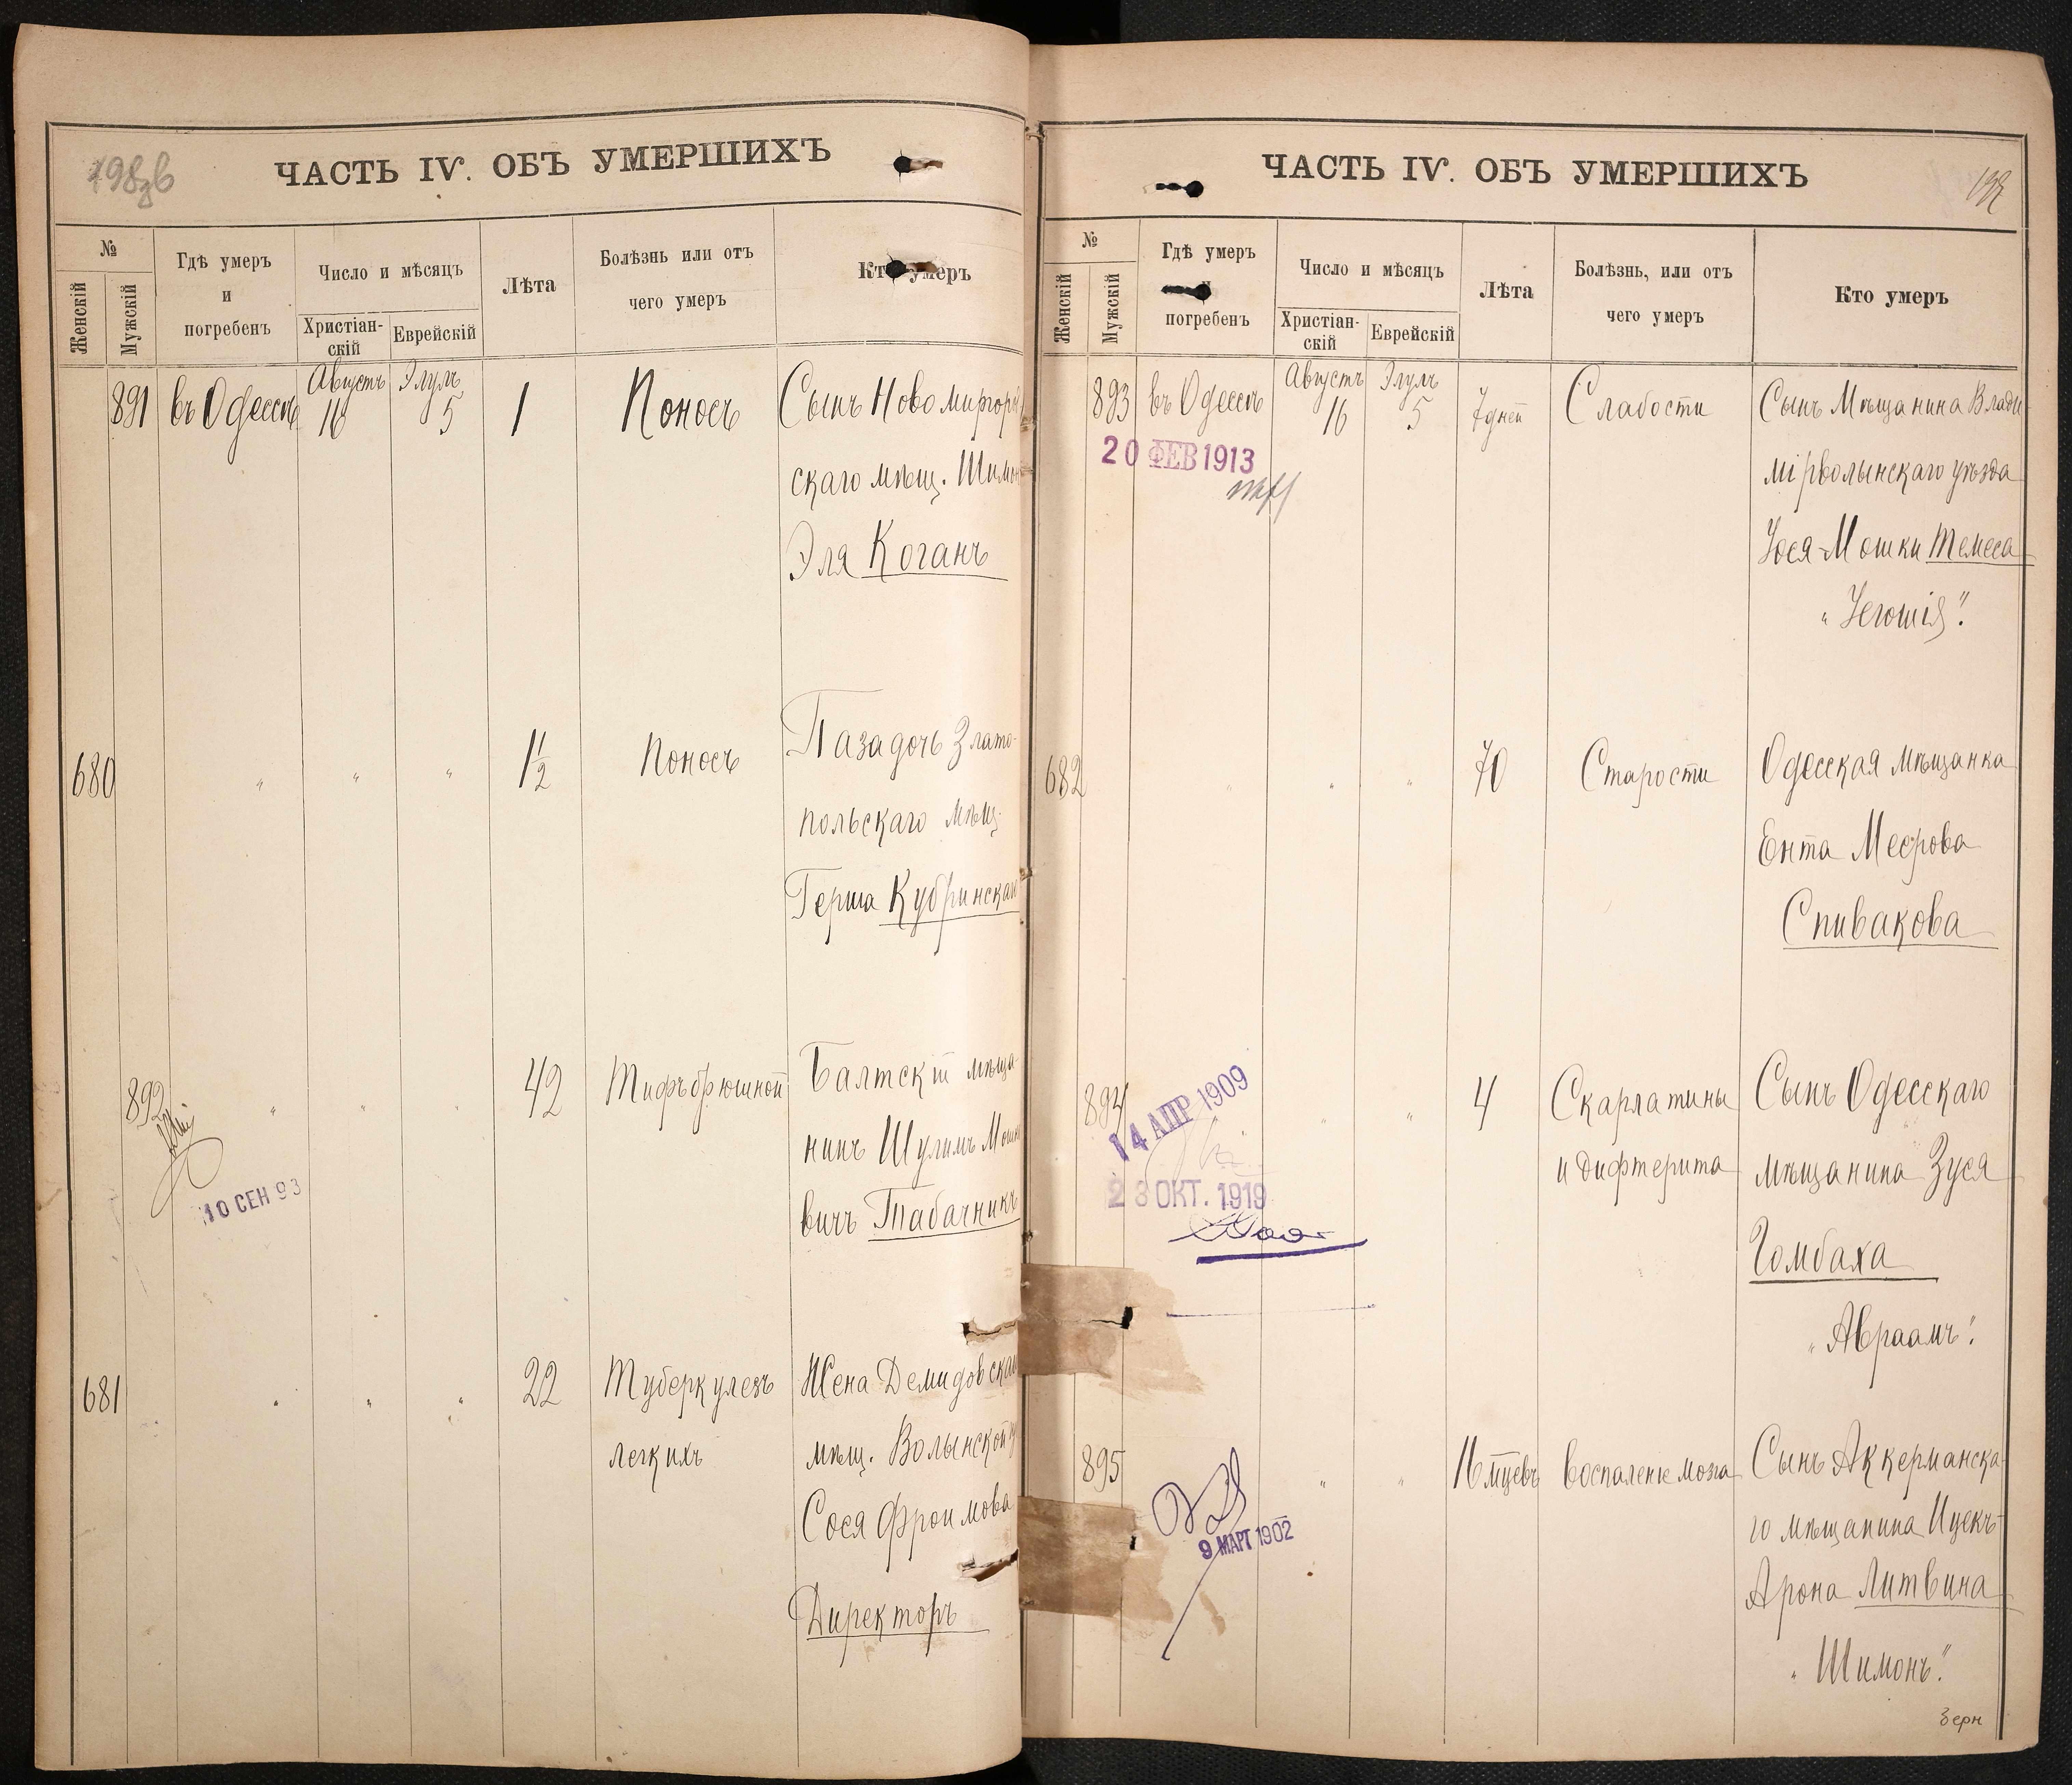 ЧАСТЬ IV. ОБЪ УМЕРШИХЪ
№
Женскій
Мужскій
Гдѣ умеръ
и
погребенъ
Число и мѣсяцъ
Христіан-
скій
Еврейскій
Лѣта
Болѣзнь или отъ
чего умеръ
Кто умеръ
891 въ Одессѣ Августъ 16 Элулъ 5 1 Поносъ Сынъ Новомиргород
скаго мѣщ. Шимон
Эля Коганъ
680 " " " 1 1/2 Поносъ Паза дочь Злато-
польскаго мѣщ.
Герша Кубринскаго
892 " " " 42 Тифъ брюшной Балтскій мѣща-
нинъ Шулимъ Мошко
вичъ Табачникъ
10 СЕН 93
681 " " " 22 Туберкулезъ Жена Демидовскаго
легкихъ мѣщ. Волынской гу
Сося Фроимова
Директоръ
ЧАСТЬ IV. ОБЪ УМЕРШИХЪ
№
Женскій
Мужскій
Гдѣ умеръ
погребенъ
Число и мѣсяцъ
Христіан-
скій
Еврейскій
Лѣта
Болѣзнь, или отъ
чего умеръ
Кто умеръ
893 въ Одессѣ Августъ 16 Элулъ 5 7 дней Слабости Сынъ Мѣщанина Влади
20 ФЕВ 1913
мірволынскаго уѣзда
Іося-Мошки Темеса
"Іегошія".
682 " " " 70 Старости Одесская мѣщанка
Ента Меерова
Спивакова
894 " " 4 Скарлатины Сынъ Одесскаго
14 АПР 1909
и дифтерита мѣщанина Зуся
23 ОКТ. 1919
Гомбаха
"Авраамъ".
895 " " 16 мцевъ Воспаленіе мозга Сынъ Аккерманска-
го мѣщанина Ицекъ-
9 МАРТ 1902
Арона Литвина
"Шимонъ".